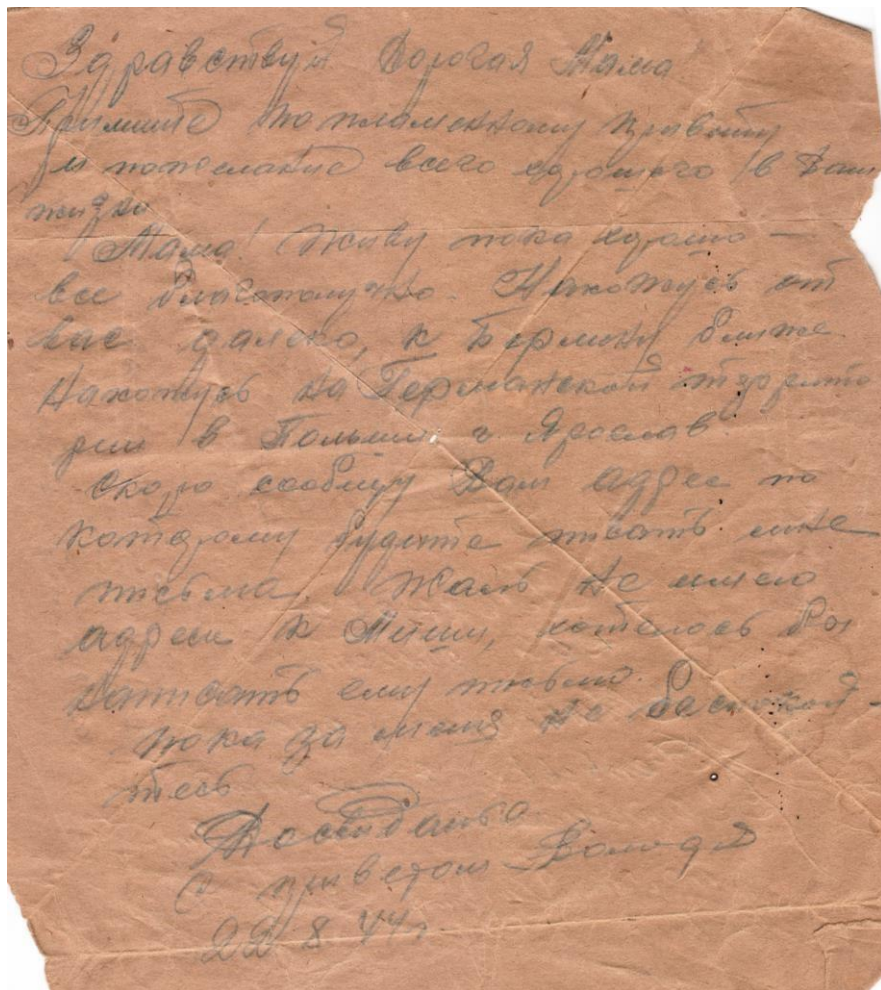 Здравствуй Дорогая Мама
Примите по пламенному привету
и пожелание всего хорошего в Ваш
жизни
Мама! Живу пока хорошо —
все благополучно. Нахожусь от
вас далеко, к Берлину ближе
нахожусь на Германской терорито
рии в Польши г. Ярослав
скоро сообщу Вам адрес по
которому будите писать мне
письма. Жаль не имею
адреса к Миши, хотелось бы
написать ему письмо.
пока за меня не беспокой-
тесь
Досвиданье
с приветом Володя
22 8 44 г